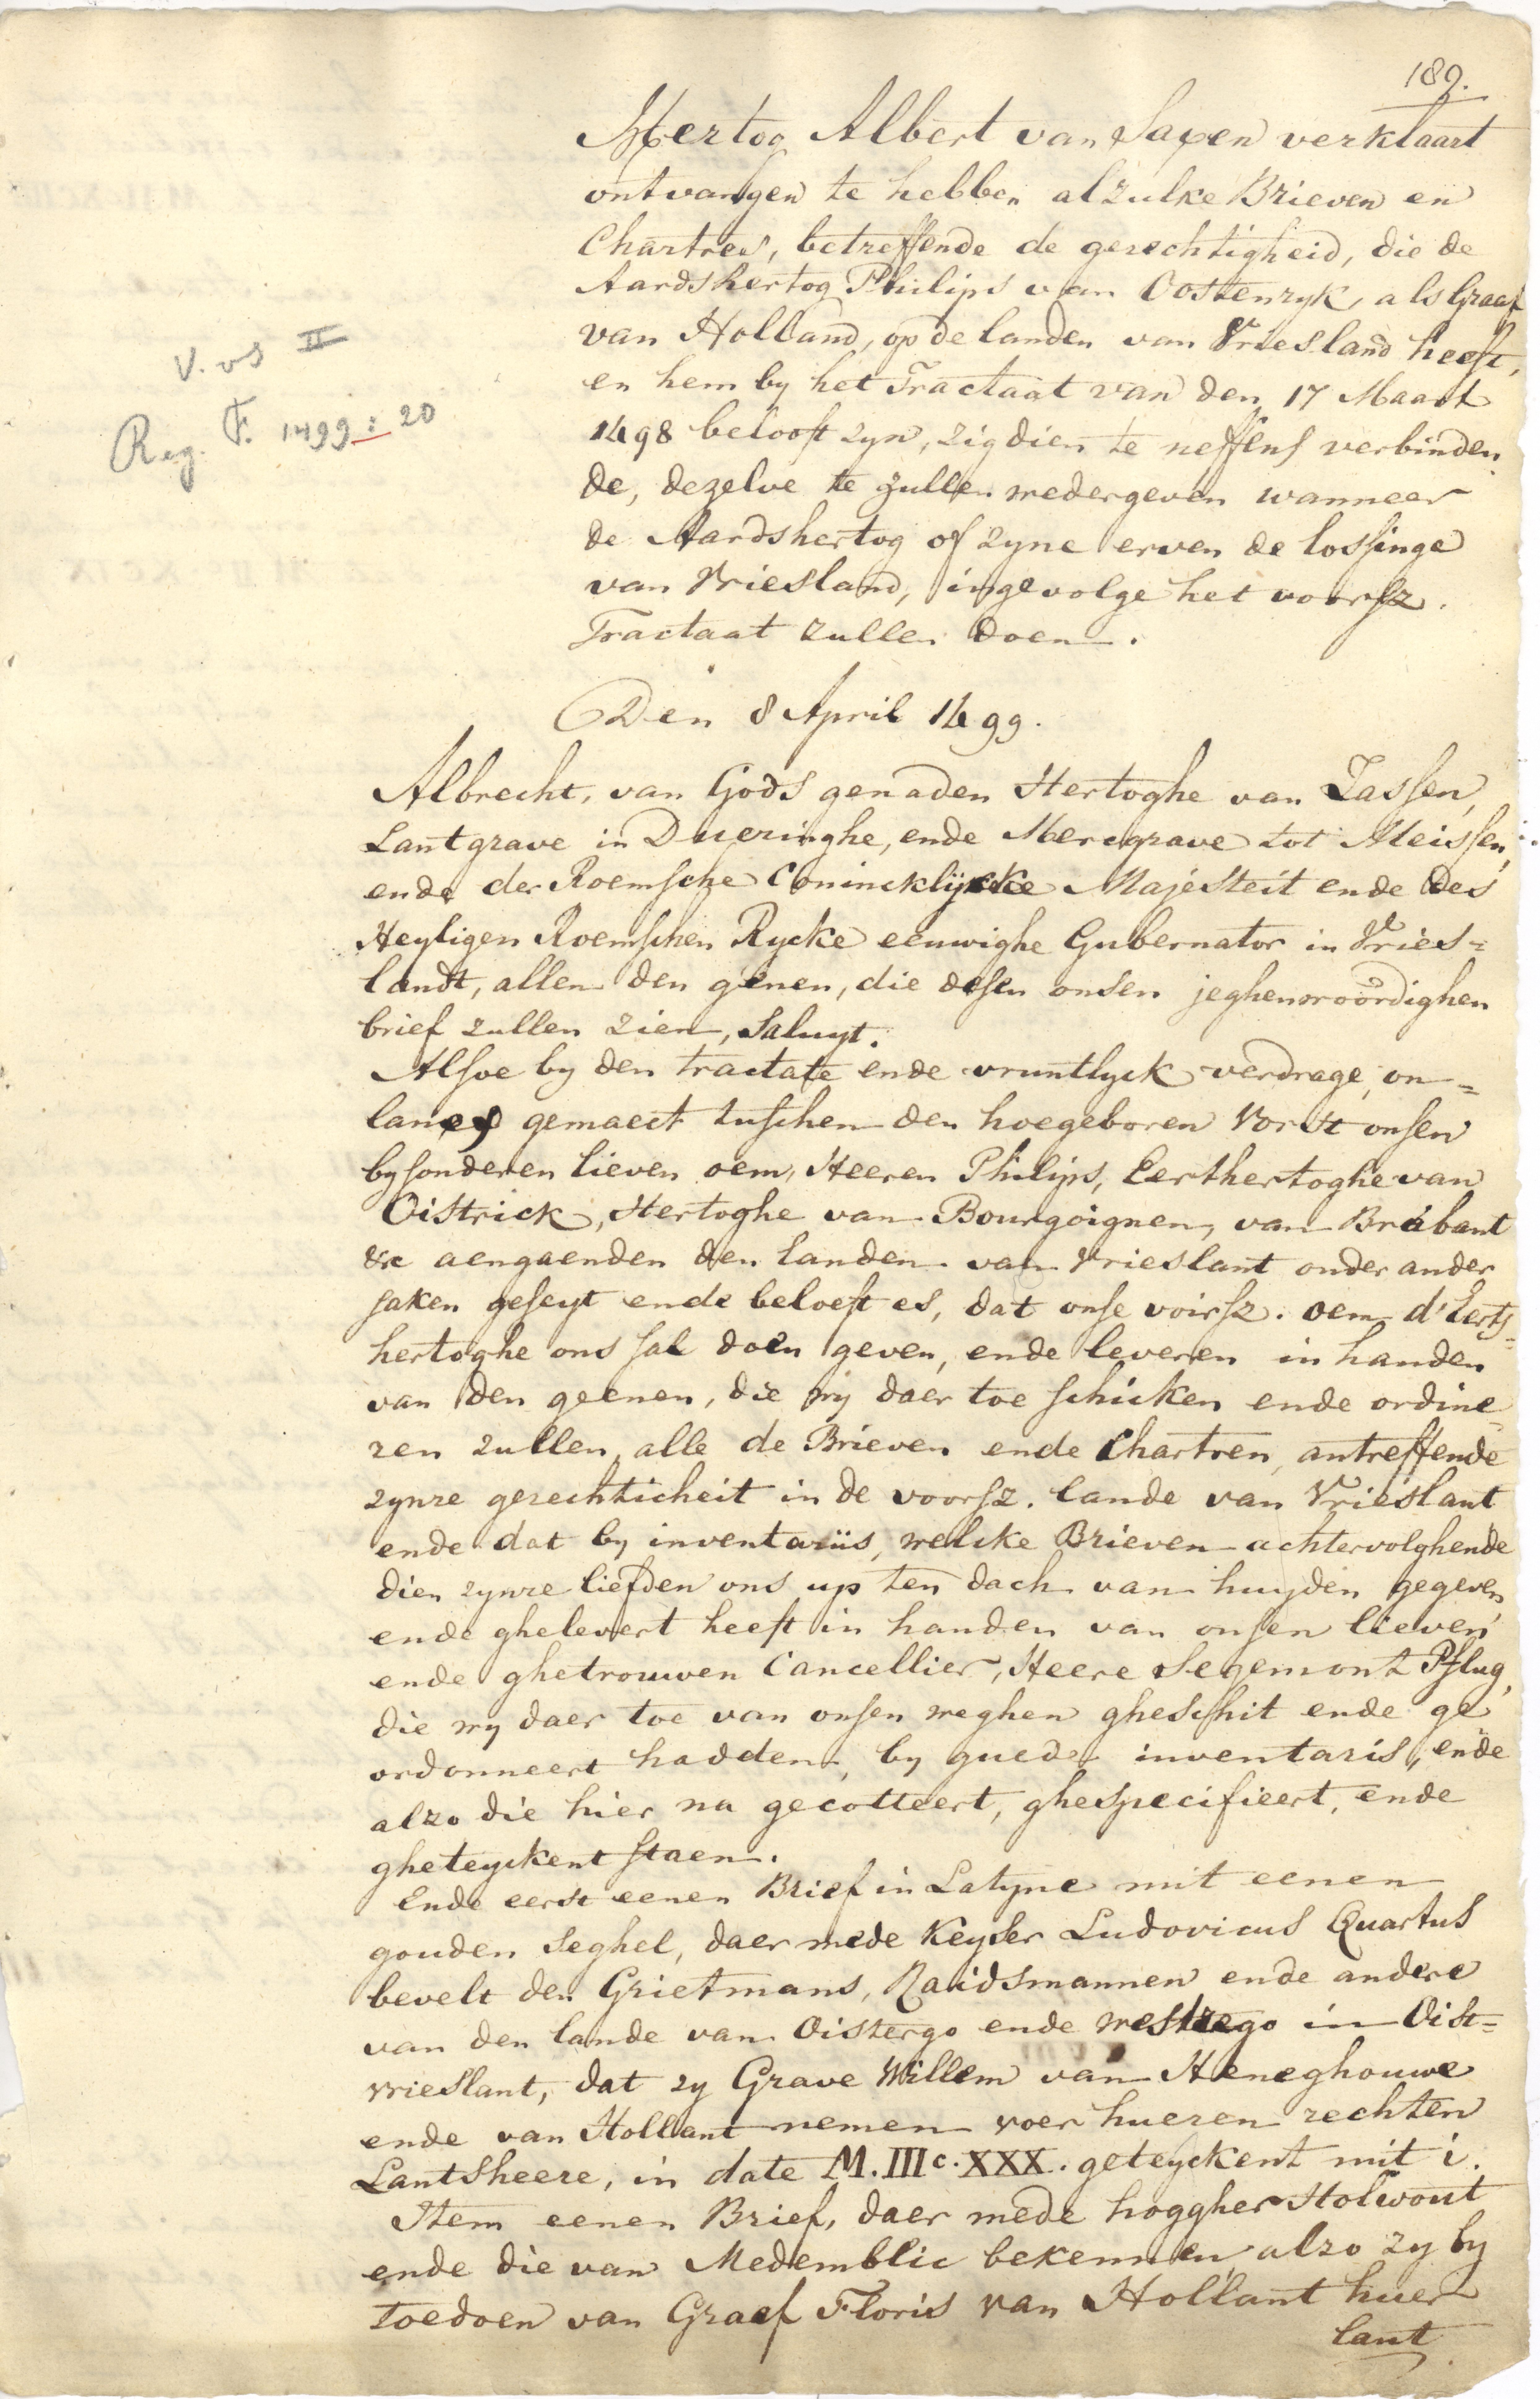 189.
Hertog Albert van Saxen verklaart
ontvangen te hebben alzulke Brieven en
Chartres, betreffende de gerechtigheid, die de
Aardshertog Philips van Oostenryk, als Graaf
van Holland, op de landen van Vriesland heeft,
en hem by het Tractaat van den 17 Maart
1498 belooft zyn, zig dien te neffens verbinden
de, dezelve te zullen wedergeven wanneer
de Aardshertog of zyne erven de lossinge
van Vriesland, ingevolge het voorsz.
Tractaat zullen doen.
V. vs II
Reg. F. 1499: 20
Den 8 April 1499.
Albrecht, van Gods genaden Hertoghe van Sassen,
Lantgrave in Dueringhe, ende Mercgrave tot Meissen,
ende der Roemsche Conincklijcke Majesteit ende des
Heyligen Roemschen Rycke eeuwighe Gubernator in Vries=
landt, allen den genen, die desen onsen jeghenwoordighen
brief zullen zien, Saluyt.
Alsoe by den tractate ende vruntlyck verdrage, on=
lancx gemaect tuschen den hoegeboren Vorst onsen
bysonderen lieven oem, Heeren Philips, Eerthertoghe van
Oistrick, Hertoghe van Bourgoignen, van Brabant
&c aengaenden den landen van Vrieslant onder ander
saken geseyt ende beloeft es, dat onse voirsz. oem d'Eerts=
hertoghe ons sal doen geven, ende leveren in handen
van den geenen, die wy daer toe schicken ende ordine=
ren zullen, alle de Brieven ende Chartren, antreffende
zynre gerechticheit in de voorsz. lande van Vrieslant
ende dat by inventariis, welcke Brieven achtervolghende
dien zynre liefden ons up ten dach van huyden gegeven
ende ghelevert heeft in handen van onsen lieven
ende ghetrouwen Cancellier, Heere Segemont Pflug,
die wy daer toe van onsen weghen gheschit ende ge
ordonneert hadden, by guede inventaris, ende
alzo die hier na gecotteert, ghespecifieert, ende
gheteyckent staen.
Ende eerst eenen Brief in Latyne mit eenen
gouden Seghel, daer mede Keyser Ludovicus Quartus
bevelt den Grietmans, Raidsmannen ende andere
van den lande van Oistergo ende Westrego in Oist=
vrieslant, dat zy Grave Willem van Heneghouwe
ende van Hollant nemen voer hueren rechten
Lantsheere, in date M.IIIc.XXX. geteyckent mit i.
Item eenen Brief, daer mede hoggher Holwout
ende die van Medemblic bekennen, alzo zy by
toedoen van Graef Floris van Hollant huer
lant